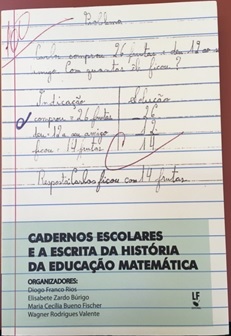 Problema
Carlos comprou 26 frutas e deu 12 ao a
migo. Com quantas ele ficou?
Indicação Solução
comprou = 26 frutas 26
deu = 12 ao amigo 12
ficou = 14 frutas 14
Resposta: Carlos ficou com 14 frutas.
CADERNOS ESCOLARES
E A ESCRITA DA HISTÓRIA
DA EDUCAÇÃO MATEMÁTICA
ORGANIZADORES:
Diogo Franco Rios
Elisabete Zardo Búrigo
Maria Cecília Bueno Fischer
Wagner Rodrigues Valente
LF